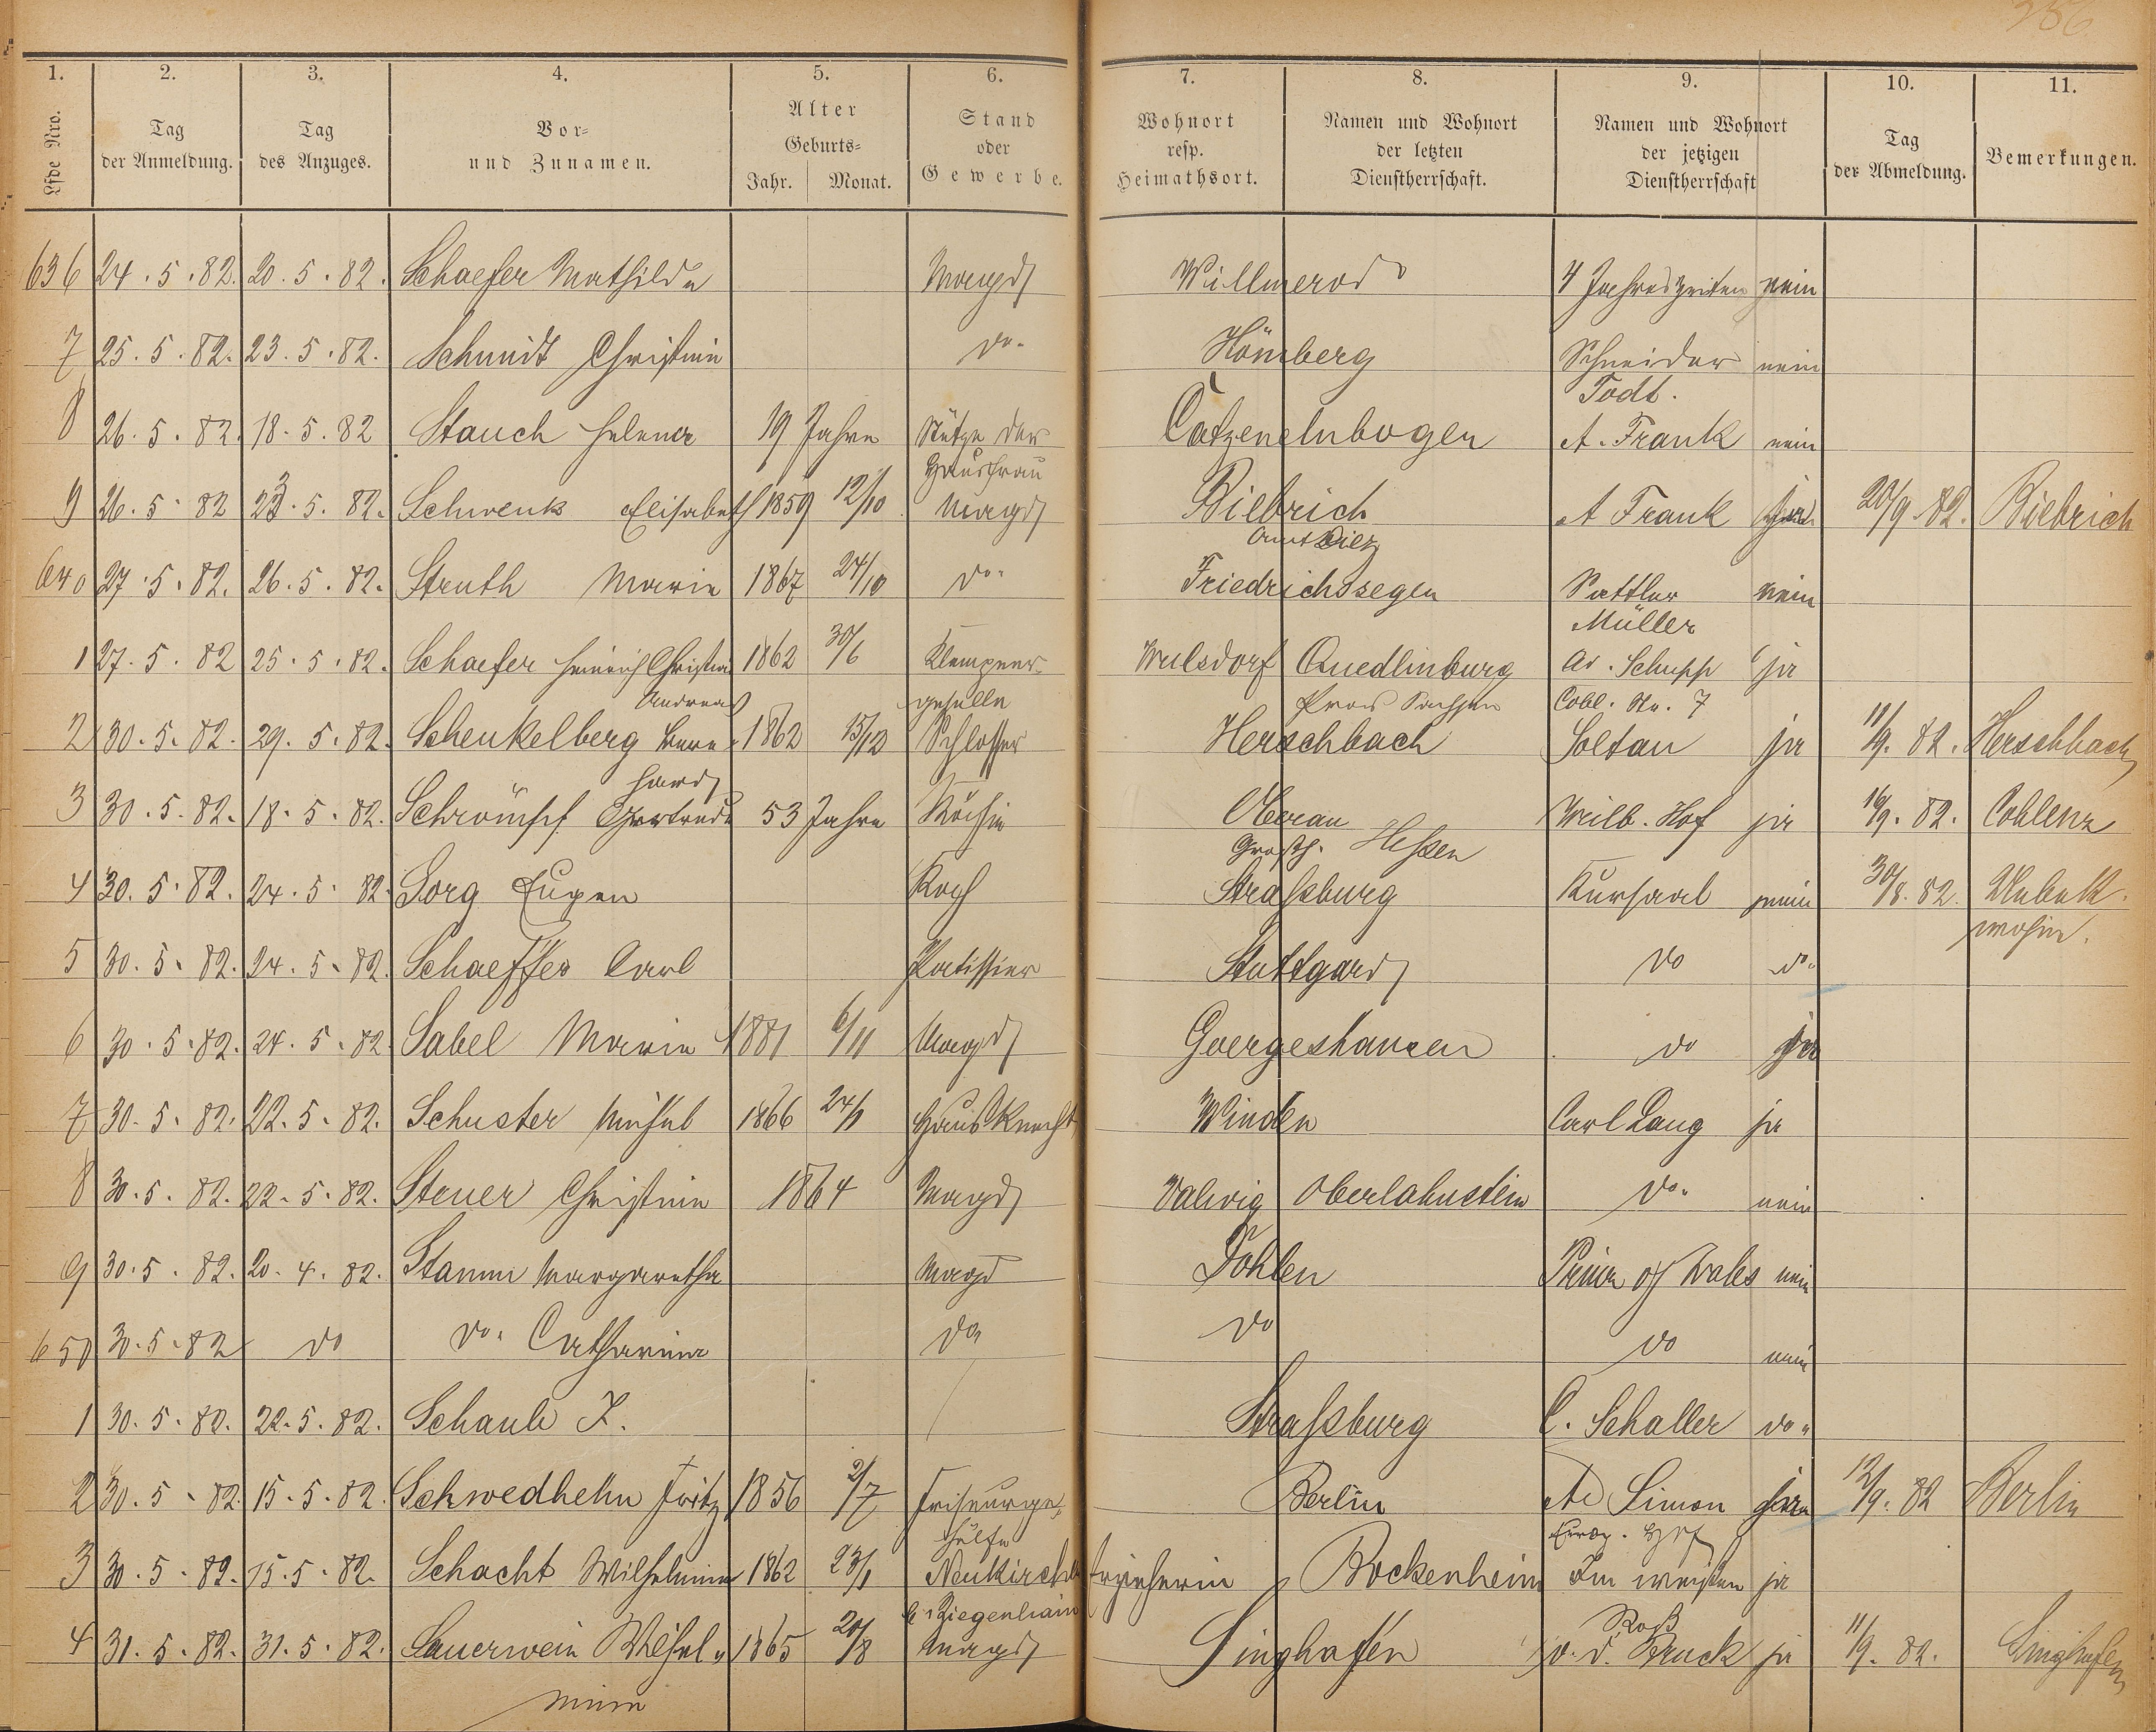 256
1. 2. 3. 4. 5. 6. 7. 8. 9. 10. 11.
Lfde Nro.
Tag der Anmeldung.
Tag des Anzuges.
Vor= und Zunamen.
Alter Geburts= Jahr. Monat.
Stand oder Gewerbe.
Wohnort resp. Heimathsort.
Namen und Wohnort der letzten Dienstherrschaft.
Namen und Wohnort der jetzigen Dienstherrschaft
Tag der Abmeldung.
Bemerkungen.
636 24.5.82. 20.5.82. Schaefer Mathilde Magd Willmerod 4 Jahreszeiten nein
7 25.5.82. 23.5.82. Schmidt Christine do. Hömberg Schneider nein
Todt.
8 26.5.82. 18.5.82 Stauch Helena 19 Jahre Stütze der Catzenelnbogen A. Frank nein
Hausfrau
9 26.5.82 23.5.82. Schwenk Elisabeth 1859 12/10 Magd Biebrich A Frank ja 20/9.82. Biebrich
Amt Diez
640 27.5.82. 26.5.82. Struth Marie 1867 24/10 do. Friedrichssegen Sattler nein
Müller
1 27.5.82 25.5.82. Schaefer Heinrich Christian 1862 30/6 Klempner- Wulsdorf Quedlinburg Ad. Schupp ja
Andreas geselle Prov Sachsen Cobl. Str. 7
2 30.5.82. 29.5.82. Schenkelberg Bern- 1862 15/12 Schlosser Herschbach Soltau ja 11/9.82. Herschbach
hard
3 30.5.82. 18.5.82. Schrömpf Gertrude 53 Jahre Köchin Oberau Weilb. Hof ja 16/9.82. Coblenz
Grosh. Hessen
4 30.5.82. 24.5.82. Sorg Eugen Koch Strassburg Kursaal nein 30/8.82. Unbek.
wohin.
5 30.5.82. 24.5.82. Schaeffer Carl Patissier Stuttgard do do.
6 30.5.82. 24.5.82 Sabel Marie 1881 6/11 Magd Goergeshausen do ja
7 30.5.82. 22.5.82. Schuster Michel 1866 24/1 Hausknecht Winden Carl Lang ja
8 30.5.82. 22.5.82. Steuer Christine 1864 Magd Valwig Oberlahnstein do. nein
9 30.5.82. 20.4.82. Stamm Margaretha Magd Dohlen Prince of Wales nein
650 30.5.82 do do. Catharina do do do nein
1 30.5.82. 22.5.82. Schaub J. Strassburg C. Schaller do.
2 30.5.82. 15.5.82. Schwedhelm Fritz 1856 2/7 Friseurge- Berlin Ad Simon ja 12/9.82 Berlin
hülfe Europ. Hof
3 30.5.82. 15.5.82. Schacht Wilhelmine 1862 23/1 Neukirchen Bockenheim Im weißen ja
b. Ziegenhain Roß
4 31.5.82. 31.5.82. Sauerwein Wilhel- 1865 20/8 Magd Singhofen v. d. Bruck ja 11/9.82. Singhofen
mine